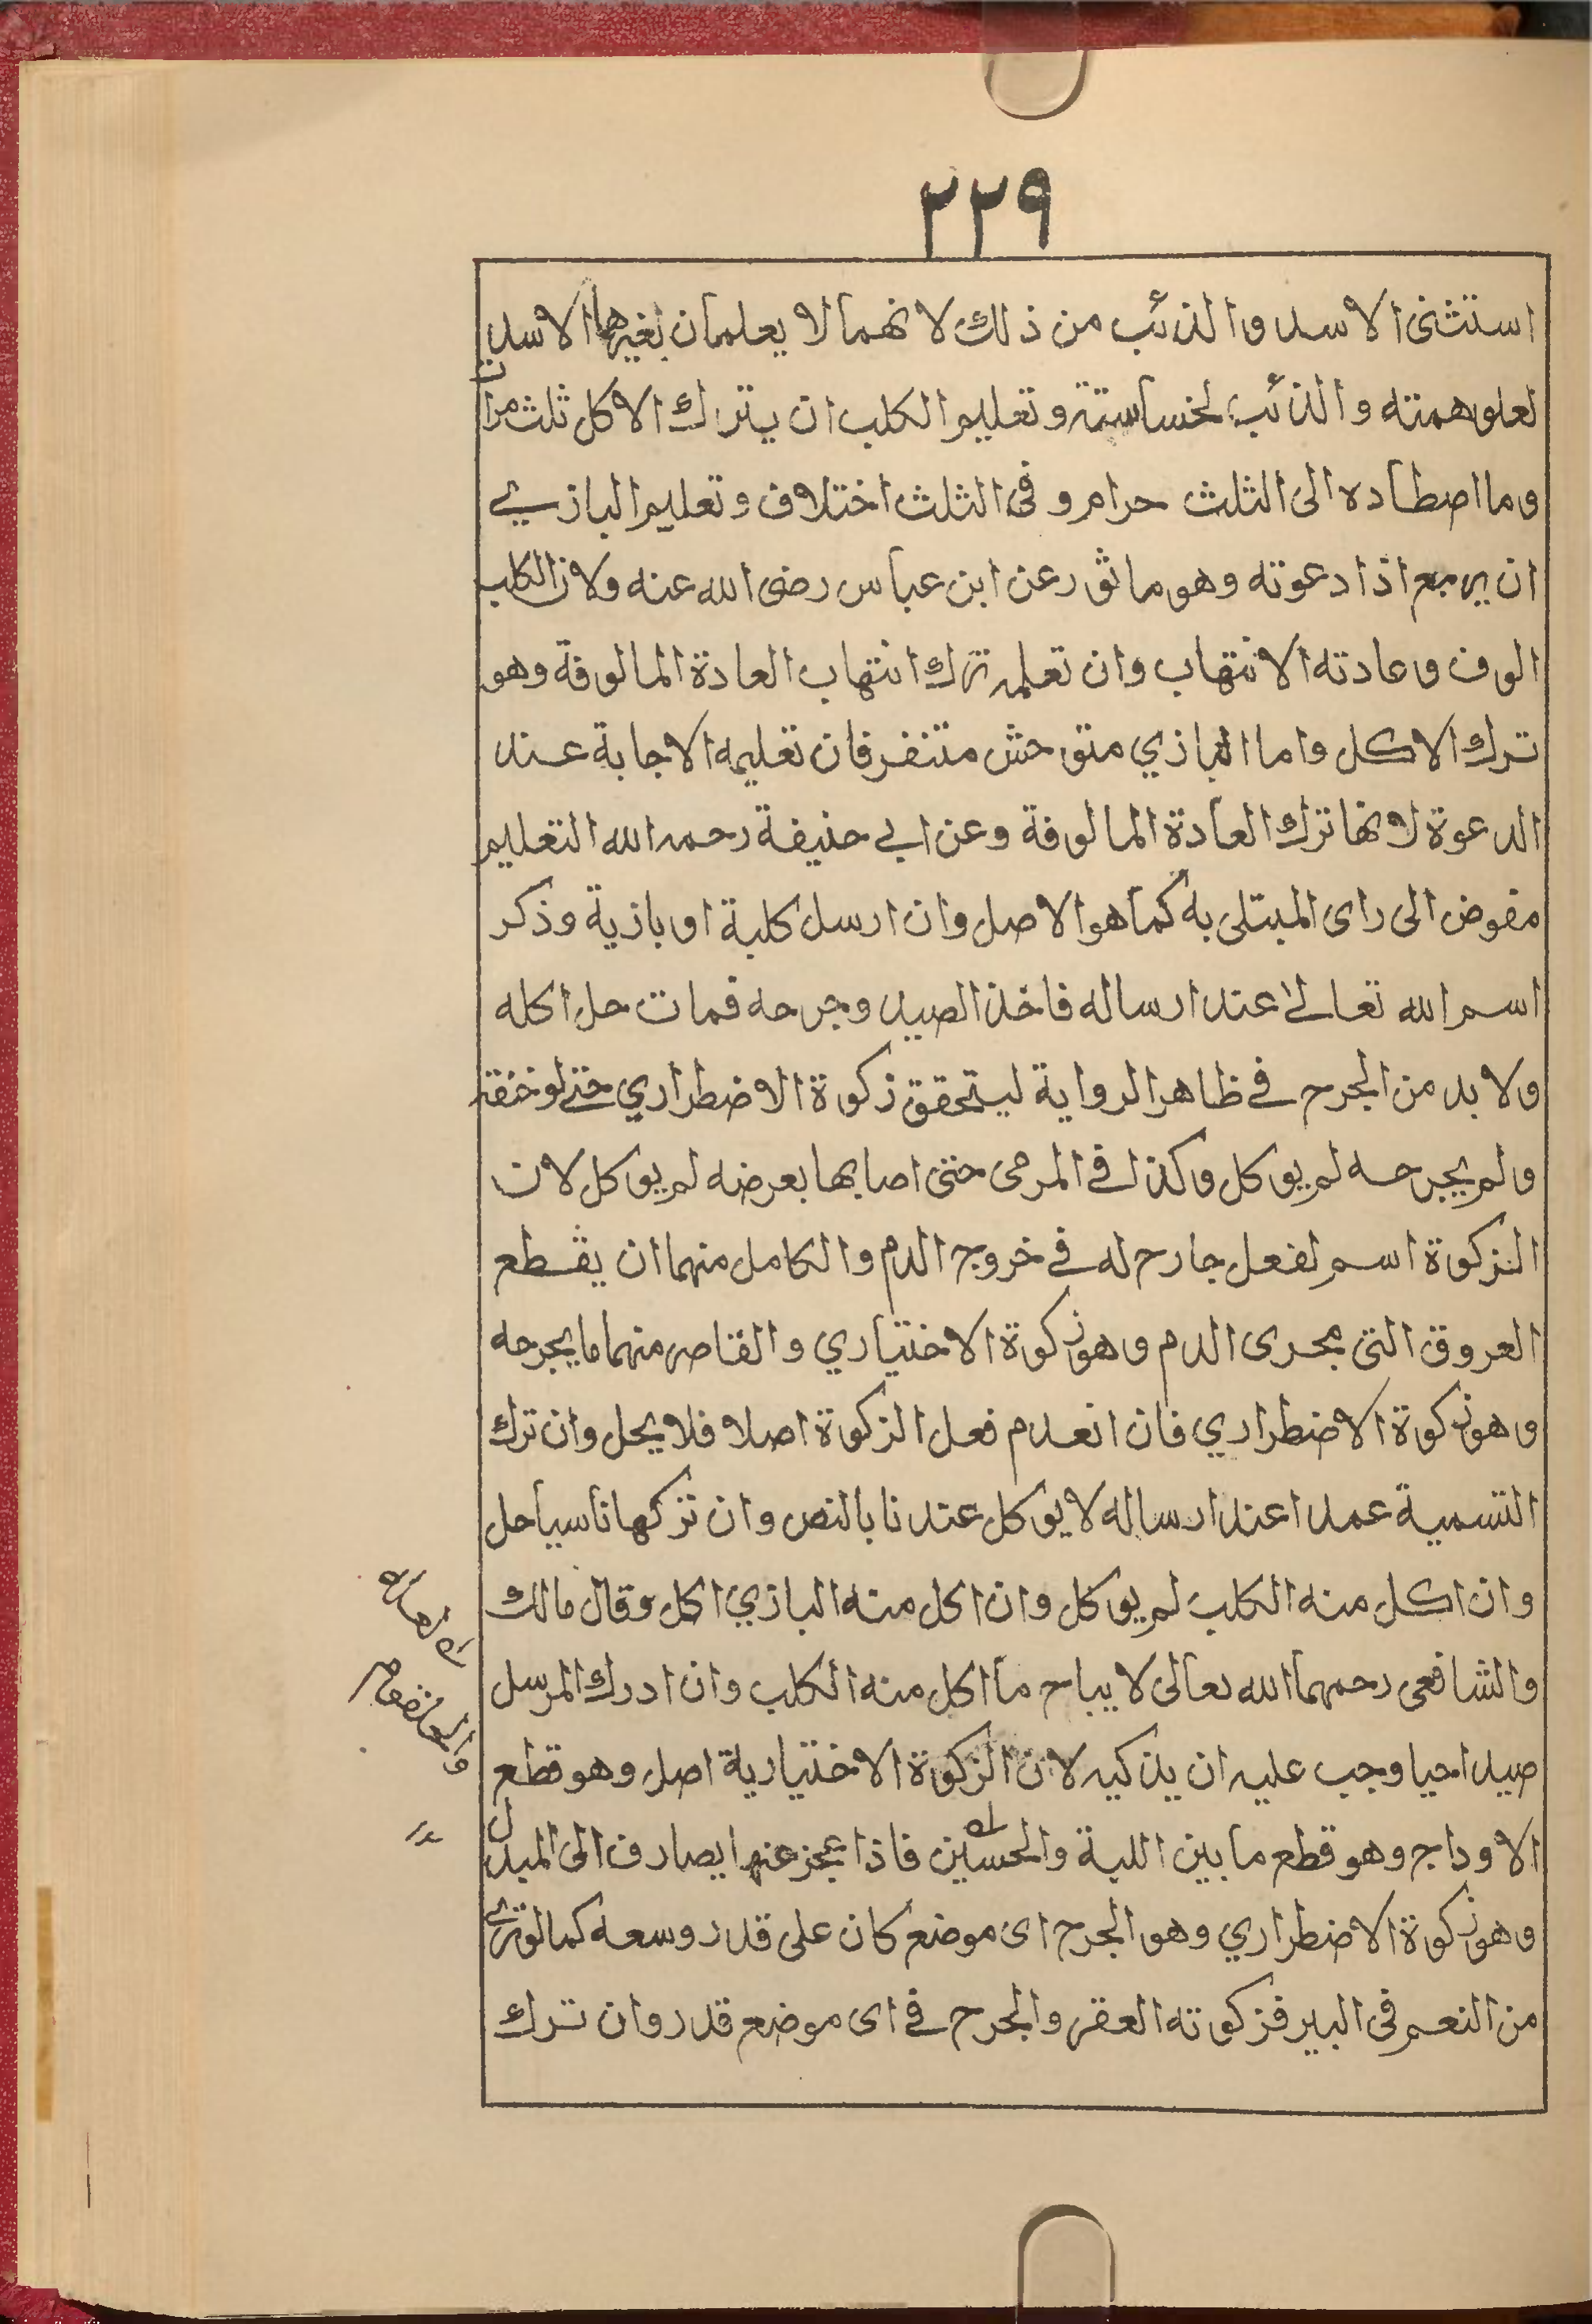 ٢٢٩
استثنى الاسد والذئب من ذلك لانهما لا يعلمان بغيرهما الاسد
لعلو همته والذئب لخساسته وتعليم الكلب ان يترك الاكل ثلث مرات
وما اصطاده الى الثلث حرام وفى الثلث اختلاف وتعليم البازي
ان يرجع اذا دعوته وهو ماثور عن ابن عباس رضى الله عنه ولان الكلب
الوف وعادته الانتهاب وان تعلمه ترك انتهاب العادة المالوفة وهو
ترك الاكل واما البازي متوحش متنفر فان تعليمه الاجابة عند
الدعوة لانها ترك العادة المالوفة وعن ابي حنيفة رحمه الله التعليم
مفوض الى راى المبتلى به كما هو الاصل وان ارسل كلبة او بازية وذكر
اسم الله تعالى عند ارساله فاخذ الصيد وجرحه فمات حل اكله
ولا بد من الجرح في ظاهر الرواية ليتحقق زكوة الاضطراري حتى لو خنقة
ولم يجرحه لم يوكل وكذا في المرمى حتى اصابها بعرضه لم يوكل لان
الزكوة اسم لفعل جارح له في خروج الدم والكامل منهما ان يقطع
العروق التى مجرى الدم وهو زكوة الاختياري والقاصر منهما ما يجرحه
وهو زكوة الاضطراري فان انعدم فعل الزكوة اصلا فلا يحل وان ترك
التسمية عمدا عند ارساله لا يوكل عندنا بالنص وان تركها ناسيا حل
وان اكل منه الكلب لم يوكل وان اكل منه البازي اكل وقال مالك
والشافعى رحمهما الله تعالى لا يباح ما اكل منه الكلب وان ادرك المرسل
صيدا حيا وجب عليه ان يذكيه لان الزكوة الاختيارية اصل وهو قطع
الاوداج وهو قطع ما بين اللبة والحسين فاذا عجز عنها يصارف الى المبدل
وهو زكوة الاضطراري وهو الجرح اى موضع كان على قدر وسعه كما لو تردى
من النعم فى البير فزكوته العقر والجرح في اى موضع قدر وان ترك